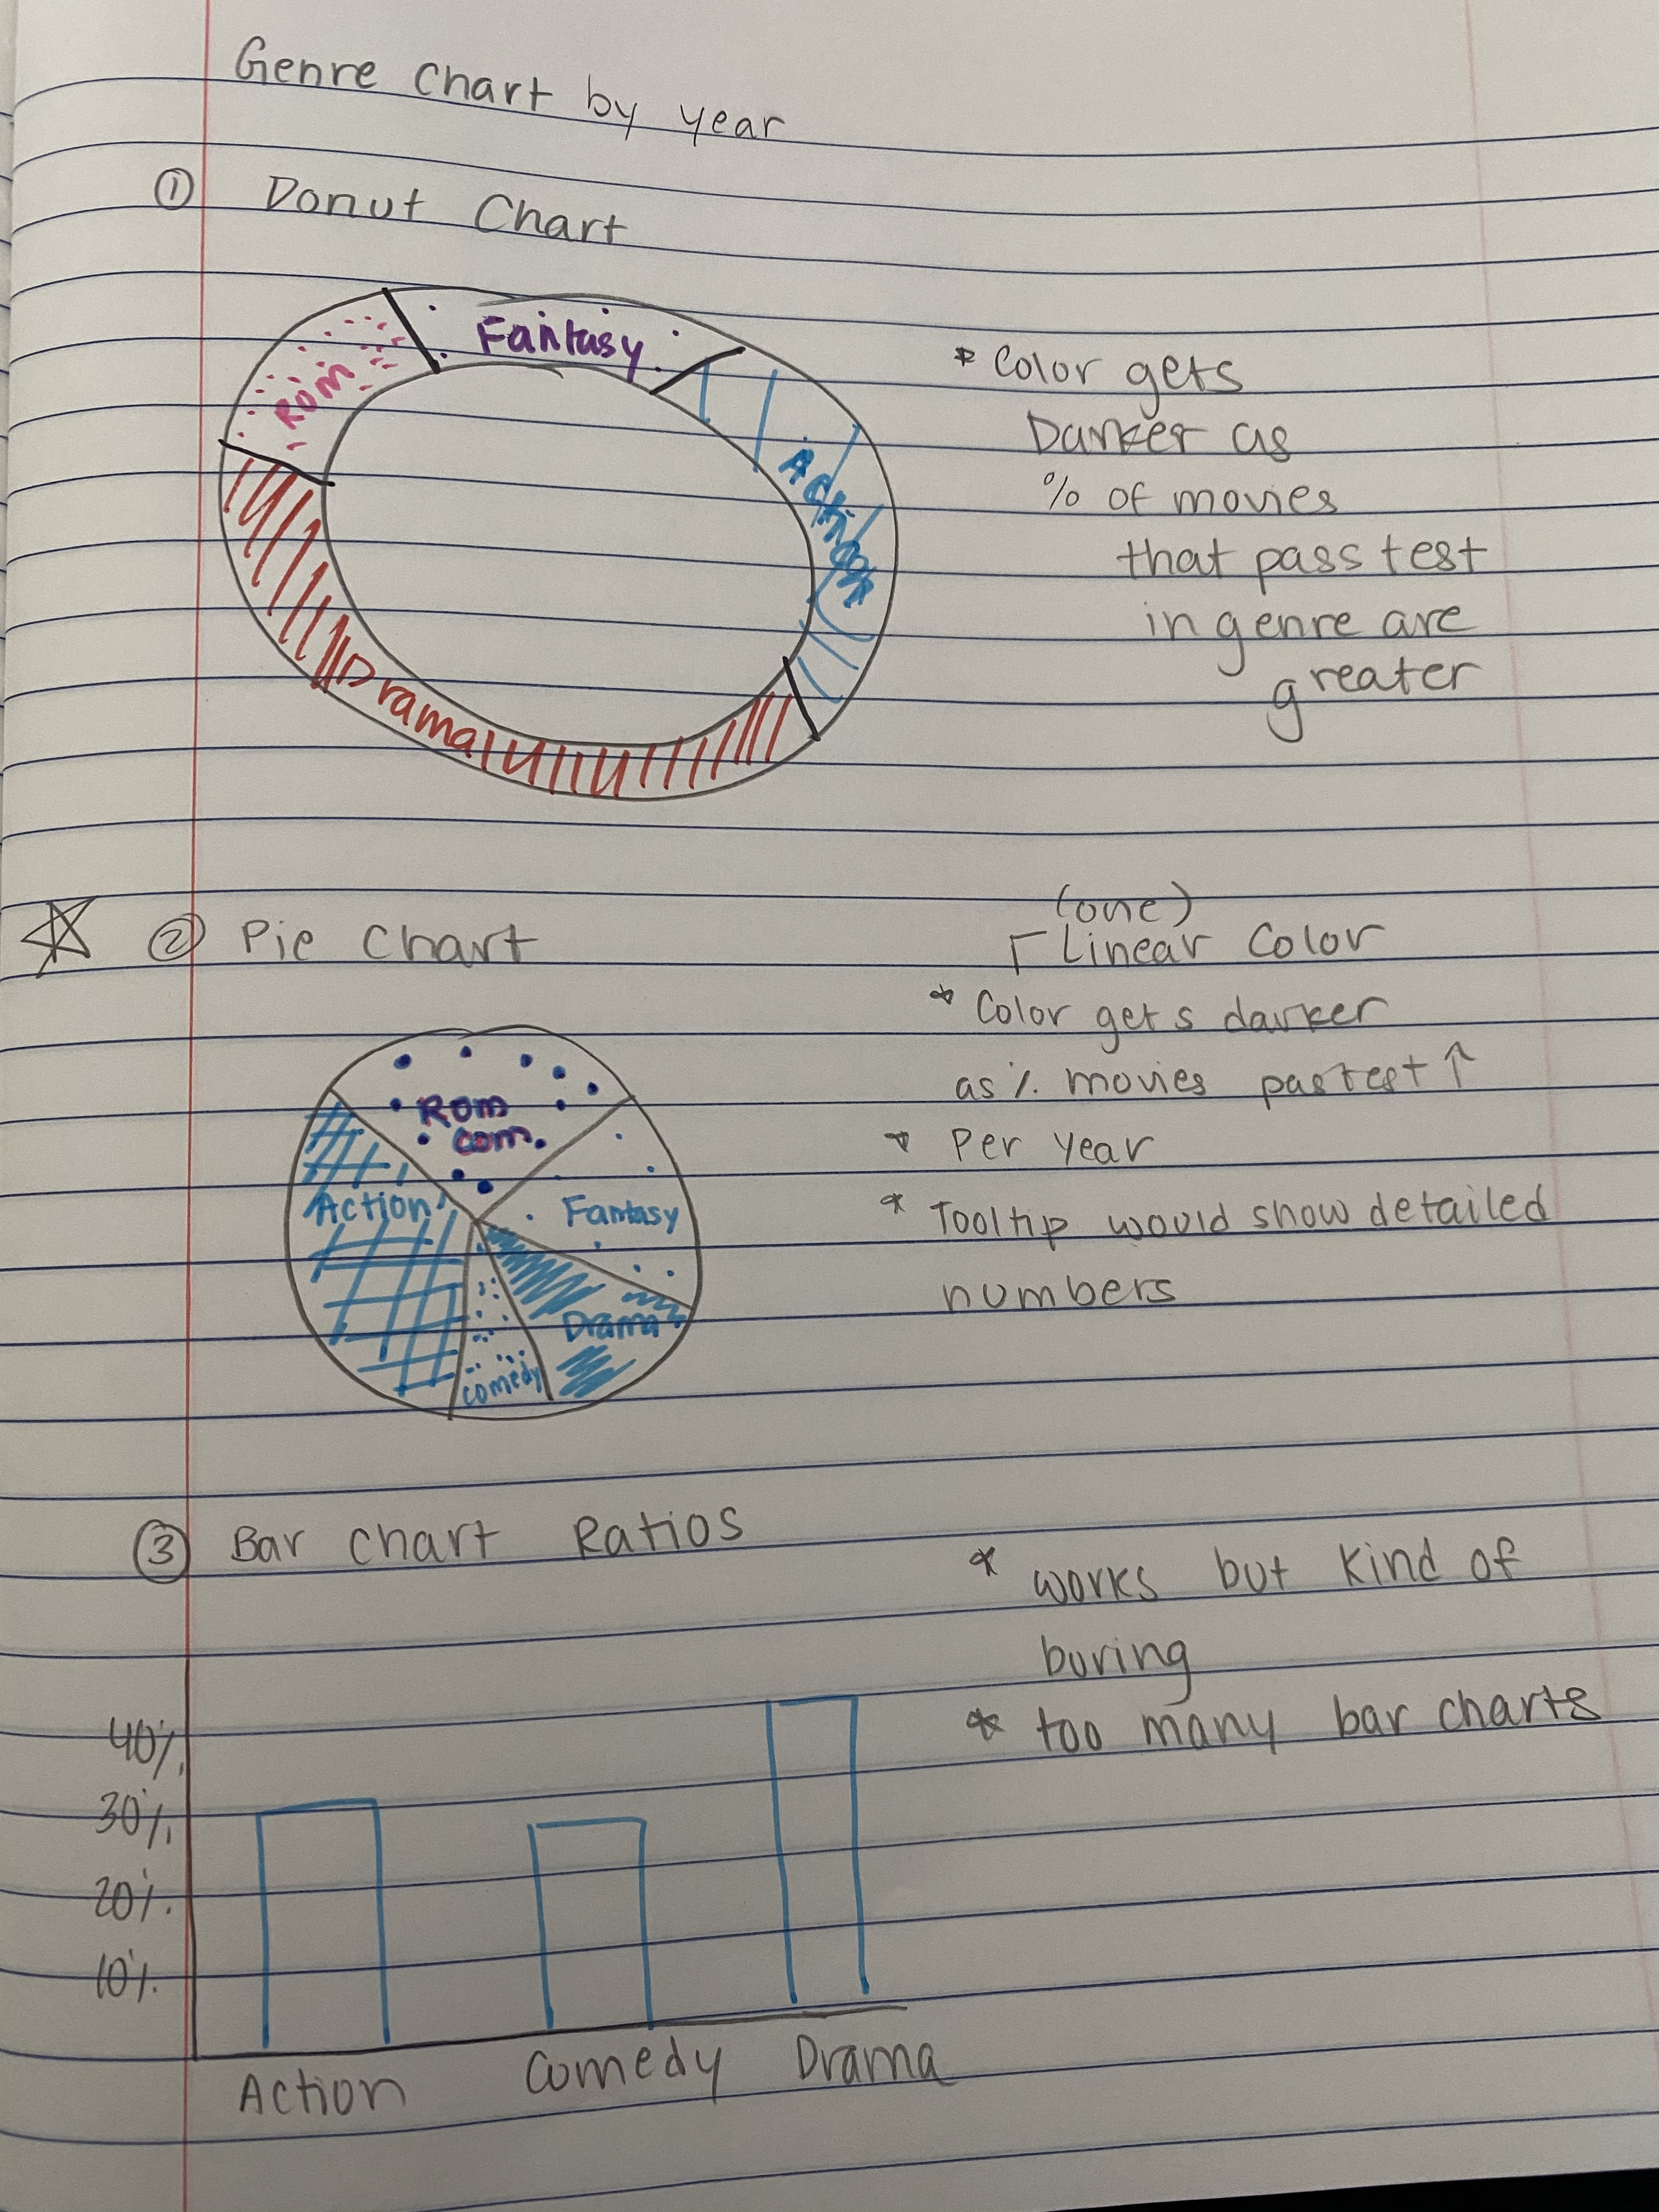 Genre Chart by year
① Donut Chart
Fantasy
Rom
Action
Drama
* Color gets
Darker as
% of movies
that pass test
in genre are
greater
② Pie Chart
(one)
Linear Color
* Color gets darker
as % movies pastest ↑
* Per year
* Tooltip would show detailed
numbers
Rom
com
Action
Fantasy
Drama
comedy
③ Bar Chart Ratios
* works but kind of
boring
* too many bar charts
40%
30%
20%
10%
Action Comedy Drama